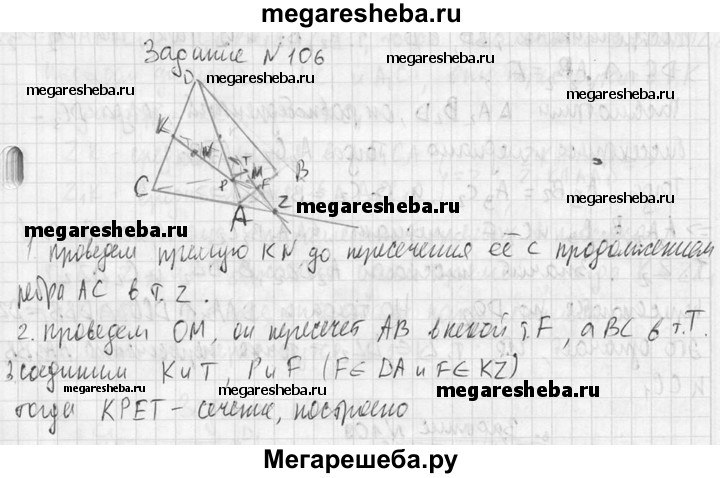 megaresheba.ru
Задание N 106
megaresheba.ru
megaresheba.ru
D
megaresheba.ru
megaresheba.ru
K
N
T
M
B
P
F
C
Z
A
megaresheba.ru
megaresheba.ru
megaresheba.ru
1 проведем прямую KN до пересечения её с продолжением
ребра AC в т. Z.
2. проведем OM, он пересечет AB в некой т. F, а BC в т. T.
3. соединим K и T, P и F (F∈ DA и F∈ KZ)
megaresheba.ru
megaresheba.ru
megaresheba.ru
тогда KPET – сечение, построено
Мегарешеба.ру